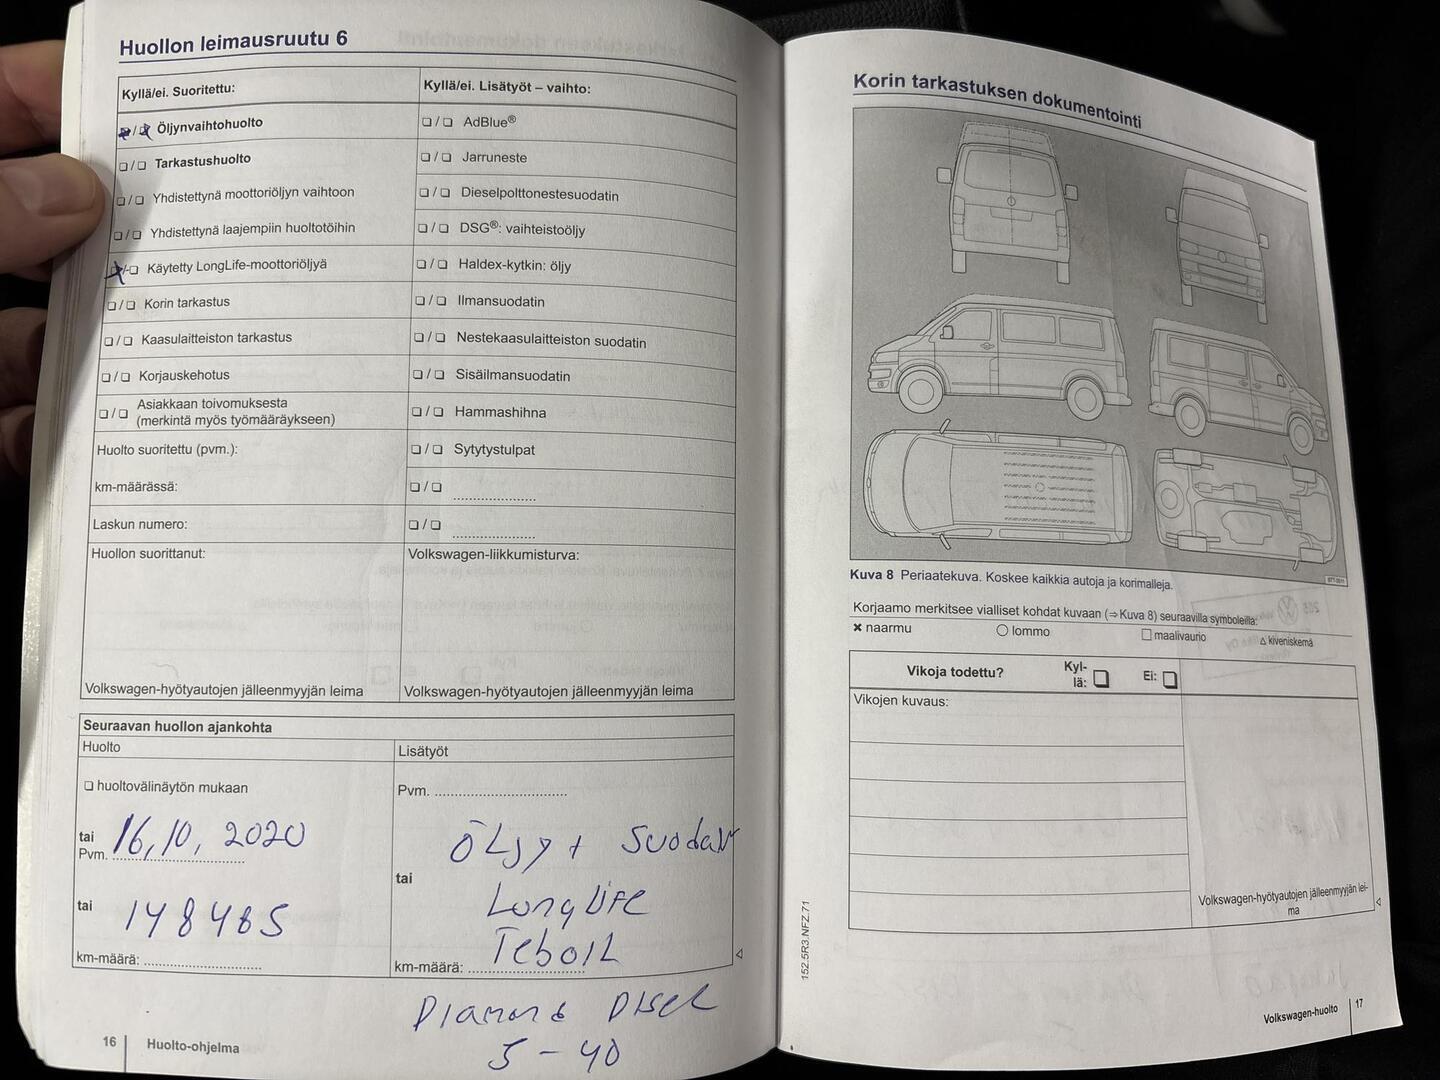 Huollon leimausruutu 6
Kyllä/ei. Suoritettu:
❏/❏ Öljynvaihtohuolto
❏/❏ Tarkastushuolto
❏/❏ Yhdistettynä moottoriöljyn vaihtoon
❏/❏ Yhdistettynä laajempiin huoltotöihin
❏/❏ Käytetty LongLife-moottoriöljyä
❏/❏ Korin tarkastus
❏/❏ Kaasulaitteiston tarkastus
❏/❏ Korjauskehotus
❏/❏ Asiakkaan toivomuksesta
(merkintä myös työmääräykseen)
Huolto suoritettu (pvm.):
km-määrässä:
Laskun numero:
Huollon suorittanut:
Volkswagen-hyötyautojen jälleenmyyjän leima
Kyllä/ei. Lisätyöt – vaihto:
❏/❏ AdBlue®
❏/❏ Jarruneste
❏/❏ Dieselpolttonestesuodatin
❏/❏ DSG®: vaihteistoöljy
❏/❏ Haldex-kytkin: öljy
❏/❏ Ilmansuodatin
❏/❏ Nestekaasulaitteiston suodatin
❏/❏ Sisäilmansuodatin
❏/❏ Hammashihna
❏/❏ Sytytystulpat
❏/❏ ..................
❏/❏ ..................
Volkswagen-liikkumisturva:
Volkswagen-hyötyautojen jälleenmyyjän leima
Seuraavan huollon ajankohta
Huolto
❏ huoltovälinäytön mukaan
tai
Pvm. 16,10, 2020
tai
148485
km-määrä: ..................
Lisätyöt
Pvm. ..................
Öljy +
tai
LongLife
Teboil
km-määrä: ..................
5-40
16
Huolto-ohjelma
Korin tarkastuksen dokumentointi
Kuva 8 Periaatekuva. Koskee kaikkia autoja ja korimalleja.
Korjaamo merkitsee vialliset kohdat kuvaan (⇒Kuva 8) seuraavilla symboleilla:
✖ naarmu ○ lommo □ maalivaurio △ kiveniskemä
Vikoja todettu? Kyl-
lä: ❏ Ei: ❏
Vikojen kuvaus:
Volkswagen-hyötyautojen jälleenmyyjän lei-
ma
152.5R3.NFZ.71
Volkswagen-huolto
17